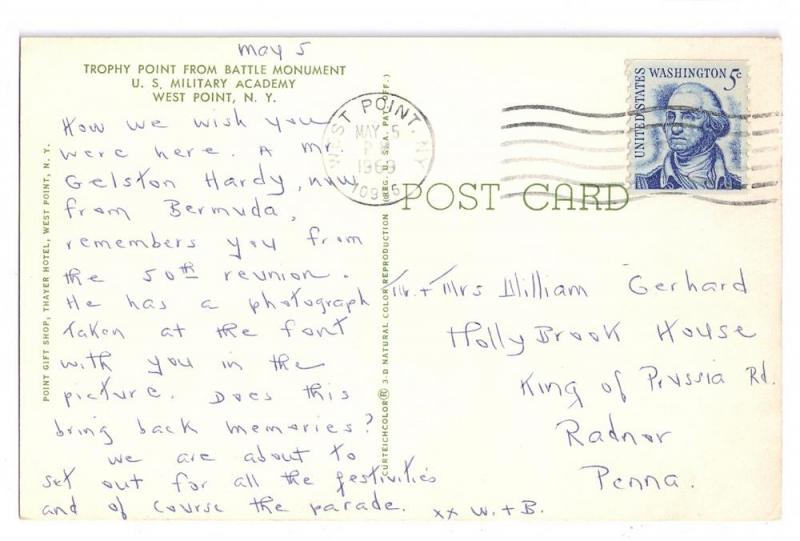 May 5
TROPHY POINT FROM BATTLE MONUMENT
U. S. MILITARY ACADEMY
WEST POINT, N. Y.
How we wish you
were here. A Mr
Gelston Hardy, now
from Bermuda,
remembers you from
the 50th reunion.
He has a photograph
taken at the font
with you in the
picture. Does this
bring back memories?
We are about to
set out for all the festivities
and of course the parade. xx W. + B.
POINT GIFT SHOP, THAYER HOTEL, WEST POINT, N. Y.
CURTEICHCOLOR® 3-D NATURAL COLOR REPRODUCTION (REG. U.S.A. PAT. OFF.)
WEST POINT, NY
MAY 5
PM
1969
10996
UNITED STATES
WASHINGTON 5c
POST CARD
Mr. + Mrs William Gerhard
Holly Brook House
King of Prussia Rd.
Radnor
Penna.